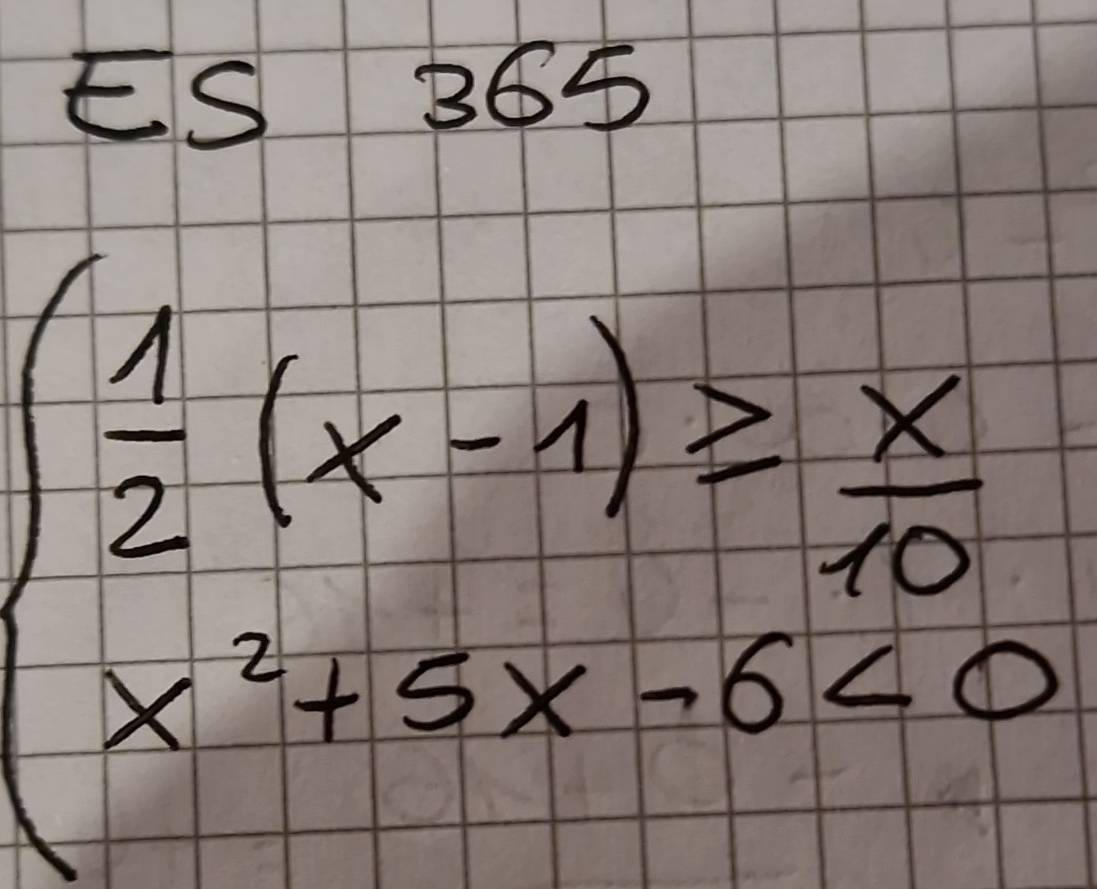 ES 365
{ 1/2 (x - 1) ≥ x/10
x² + 5x - 6 < 0